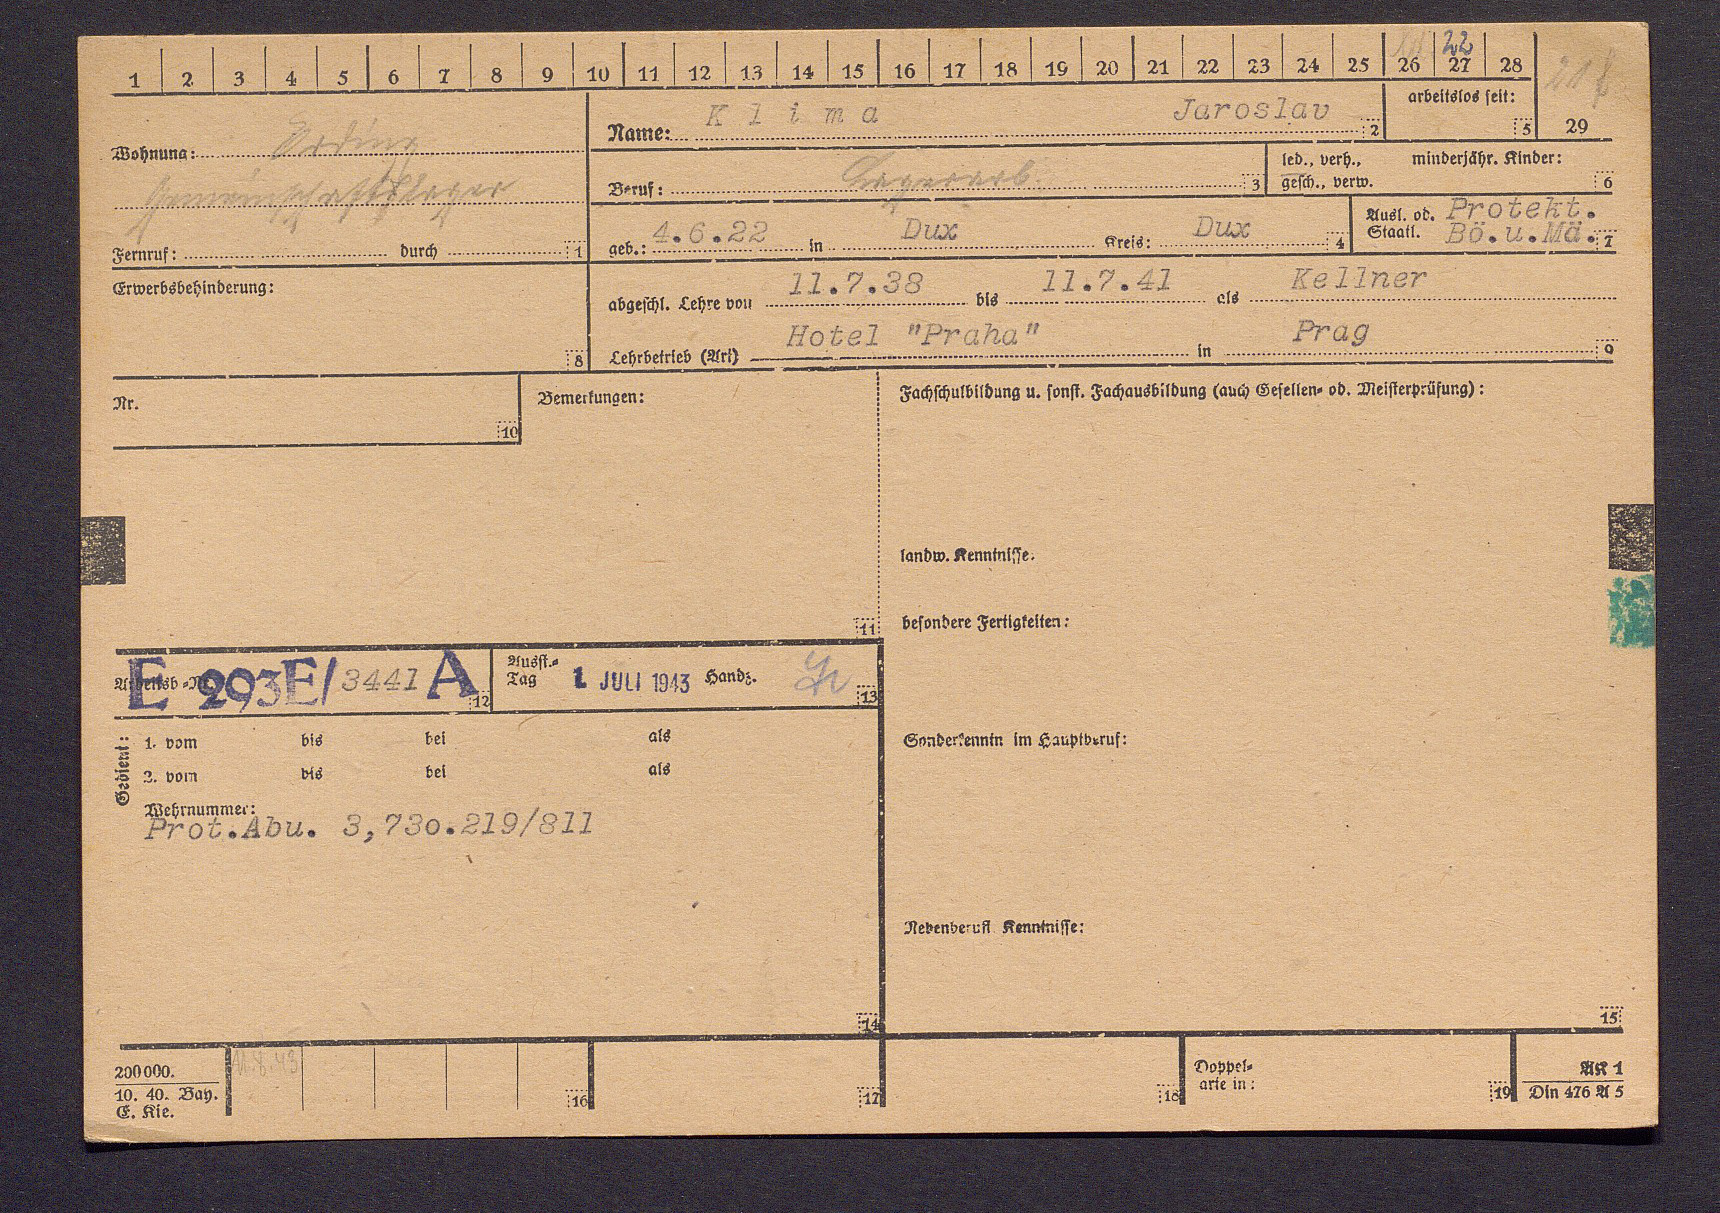 1 2 3 4 5 6 7 8 9 10 11 12 13 14 15 16 17 18 19 20 21 22 23 24 25 26 27 28
22
arbeitslos seit: 5
29
Wohnung: Erding
Gemeinschaftslager
Fernruf: durch 1
Name: Klima Jaroslav 2
Beruf: Lagerarb. 3
led., verh., minderjähr. Kinder:
gesch., verw. 6
geb.: 4.6.22 in Dux Kreis: Dux 4
Ausl. od. Protekt.
Staatl. Bö.u.Mä. 7
Erwerbsbehinderung:
8
abgeschl. Lehre von 11.7.38 bis 11.7.41 als Kellner
Lehrbetrieb (Art) Hotel "Praha" in Prag 9
Nr. 10
Bemerkungen:
11
Fachschulbildung u. sonst. Fachausbildung (auch Gesellen- od. Meisterprüfung):
landw. Kenntnisse.
besondere Fertigkeiten:
Arbeitsb.-Nr. E 293E/3441 A 12
Ausst.-
Tag 1 JULI 1943 Handz. 13
Gedient:
1. vom bis bei als
2. vom bis bei als
Wehrnummer:
Prot.Abu. 3,730.219/811
14
Sonderkenntn im Hauptberuf:
Nebenberufl Kenntnisse:
15
200000.
10. 40. Bay.
E. Kie.
11.8.43
16
17
18
Doppel-
arte in:
19
AK 1
Din 476 A 5